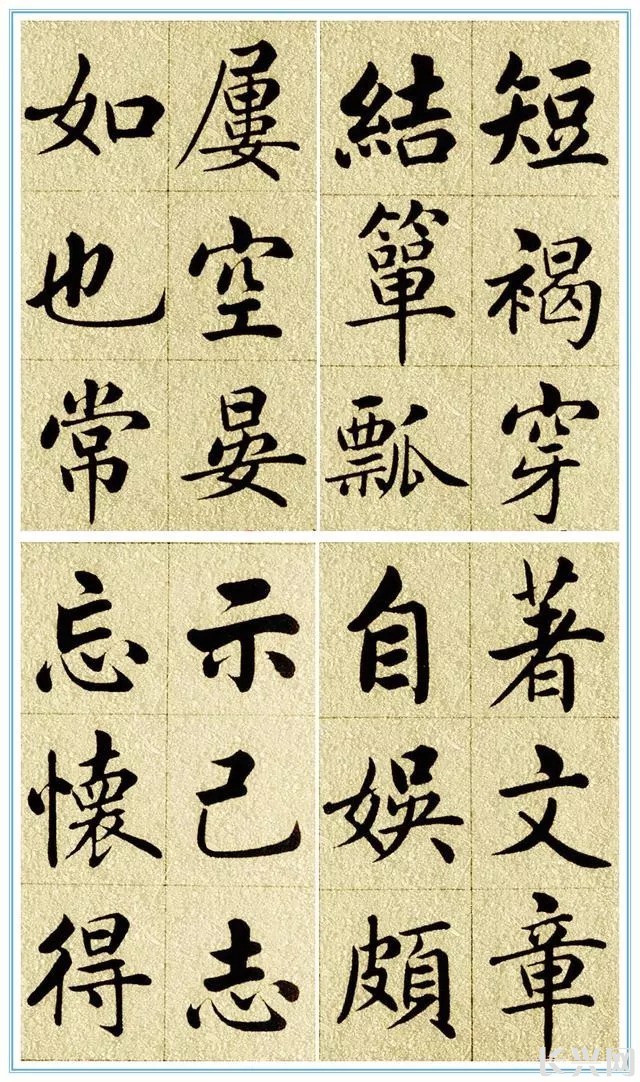 短褐穿
結簞瓢
屢空晏
如也常
著文章
自娛頗
示己志
忘懷得
长兴网